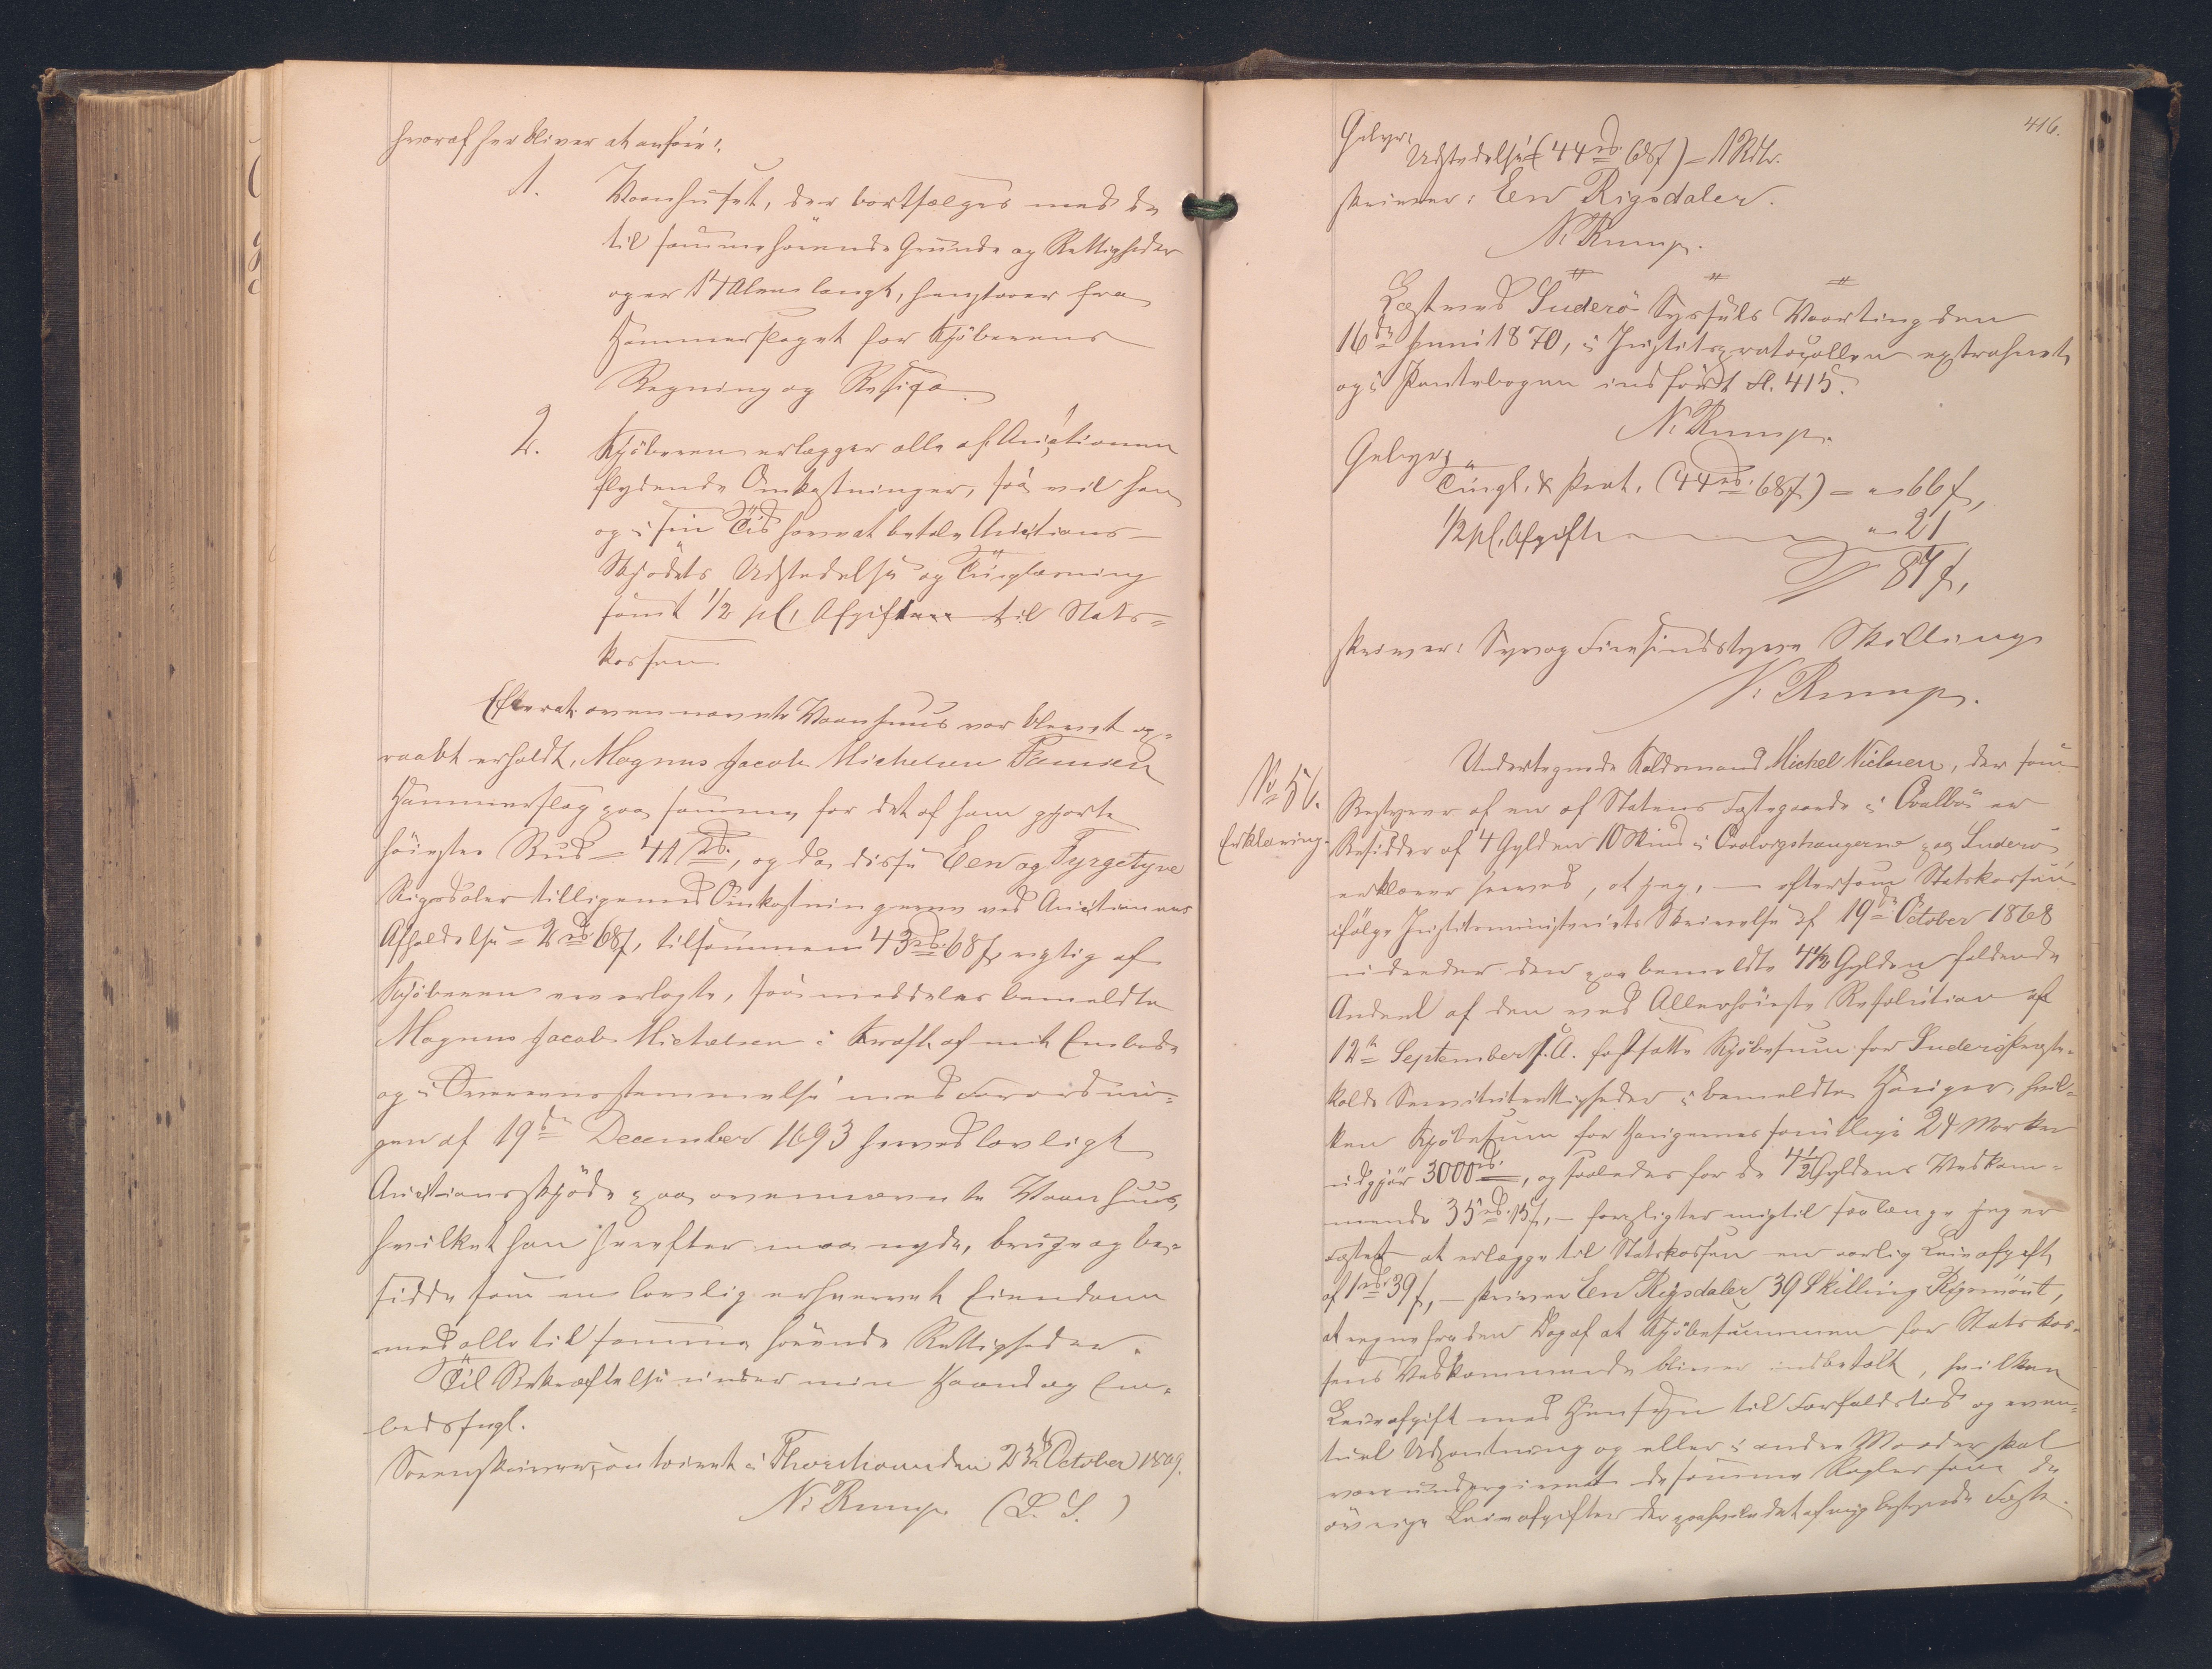 hvoraf her bliver at anføre:
1. Vaanhuset, der bortsælges med de
til samme hørende Grunde og Rettigheder
og er 17 Alen langt, henstaaer fra
Hammerslaget for Kjøberens
Regning og Risico.
2. Kjøberen erlægger alle af Auctionen
flydende Omkostninger, saa vil han
og i sin Tid have at betale Auctions-
Skjødets Udstedelse og Tinglæsning
samt 1/2 pCt. Afgiften til Stats-
kassen.
Efterat ovennævnte Vaanhuus var blevet op-
raabt erholdt, Magnus Jacob Michelsen Famien
Hammerslag paa samme for det af ham gjorte
høieste Bud = 41 rd., og da disse Een og Fyrgetyve
Rigsdaler tilligemed Omkostningerne ved Auctionens
Afholdelse = 2 rd. 68 s, tilsammen 43 rd. 68 s, rigtig af
Kjøberen ere erlagte, saa meddeles bemeldte
Magnus Jacob Michelsen i Kraft af mit Embede
og i Overeensstemmelse med Forordnin-
gen af 19de December 1693 herved lovligt
Auctionsskjøde paa ovennævnte Vaanhuus,
hvilket han herefter maa nyde, bruge og be-
sidde som en lovlig erhvervet Eiendom
med alle til samme hørende Rettigheder.
Til Bekræftelse under min Haand og Em-
bedssegl.
Sorenskrivercontoiret i Thorshavn den 23de October 1869.
N. Rump. (L. S.)
416.
Gebyr:
Udstedelse (44 rd. 68 s) = 1 Rdlr.
skriver: Een Rigsdaler.
N. Rump.
Læst ved Suderø Syssels Vaarting den
16de Juni 1870, i Justitsprotocollen extraheret
og i Pantebogen indført fol. 415.
N. Rump.
Gebyr:
Tingl. & Prot. (44 rd. 68 s) = " 66 s,
1/2 pCt. Afgift " 21
87 s,
skriver: Syv og Firesindstyve Skilling
N. Rump.
No 56.
Erklæring.
Undertegnede Kaldsmand Michel Nielsen, der som
Bestyrer af en af Statens Fæstegaarde i Qvalbø er
Besidder af 4 Gylden 10 Skind i Hvalvigshaugerne paa Suderø
erklærer herved, at jeg, — eftersom Statskassen
ifølge Justitsministeriets Skrivelse af 19de October 1868
udreder den paa bemeldte 4 1/2 Gylden faldende
Andeel af den ved Allerhøieste Resolution af
12te September s. A. fastsatte Kjøbesum for Suderø Præste-
kalds Servitutrettigheder i bemeldte Hauger, hvil-
ken Kjøbesum for Haugernes samtlige 24 Marker
udgjør 3000 rd., og saaledes for de 4 1/2 Gyldens Vedkom-
mende 35 rd. 15 s, — forpligter mig til saalænge jeg er
Fæster at erlægge til Statskassen en aarlig Leieafgift
af 1 rd. 39 s, — skriver Een Rigsdaler 39 Skilling Rigsmønt,
at regne fra den Dag af at Kjøbesummen for Statskas-
sens Vedkommende bliver indbetalt, hvilken
Leieafgift med Hensyn til Forfaldstid og even-
tuel Udpantning og eller i andre Maader skal
være undergivet de samme Regler som de
øvrige Leieafgifter der paahvile det af mig bestyrede Fæste.